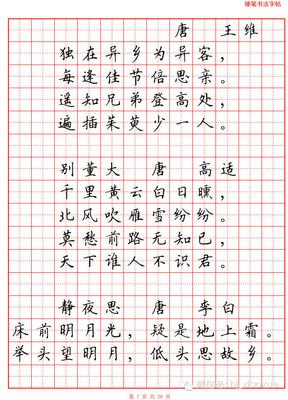 硬笔书法字帖
唐 王维
独在异乡为异客，
每逢佳节倍思亲。
遥知兄弟登高处，
遍插茱萸少一人。
别董大 唐 高适
千里黄云白日曛，
北风吹雁雪纷纷。
莫愁前路无知己，
天下谁人不识君。
静夜思 唐 李白
床前明月光，疑是地上霜。
举头望明月，低头思故乡。
第 7 页 共 28 页